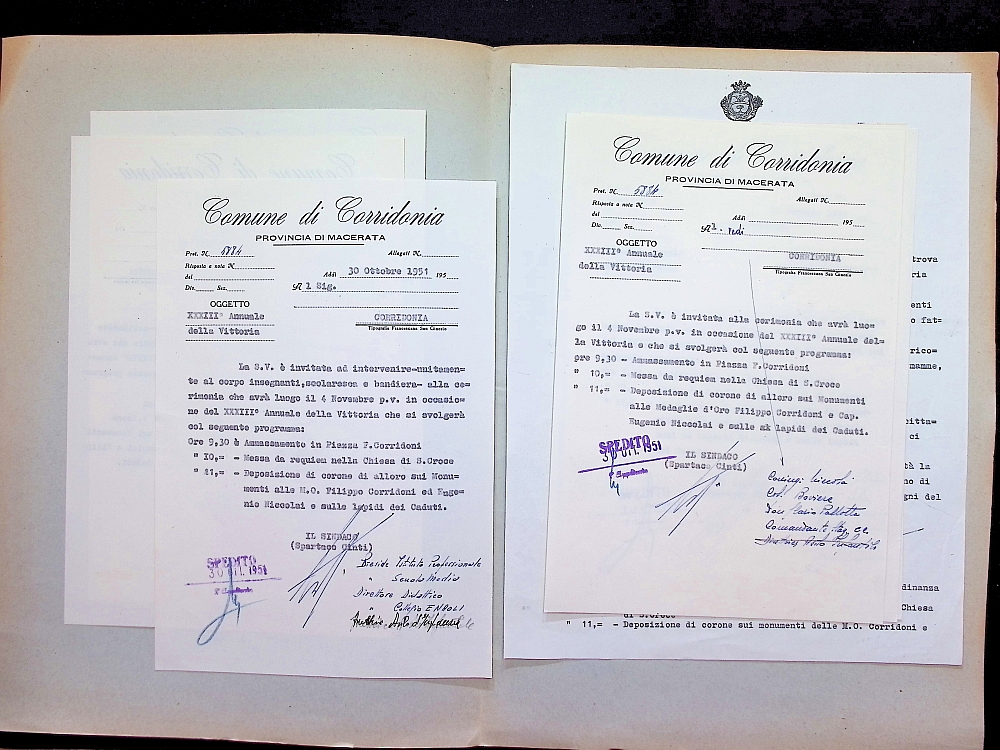 Comune di Corridonia
PROVINCIA DI MACERATA
Prot. N. 5884
Allegati N.
Risposta a nota N.
del
Addì 30 Ottobre 1951 195
Div. Sez.
Al Sig.
OGGETTO
XXXIII° Annuale
della Vittoria
CORRIDONIA
Tipografia Francescana San Ginesio
La S.V. è invitata ad intervenire-unitamen=
te al corpo insegnanti,scolaresca e bandiera- alla ce=
rimonia che avrà luogo il 4 Novembre p.v. in occasio=
ne del XXXIII° Annuale della Vittoria che si svolgerà
col seguente programma:
Ore 9,30 è Ammassamento in Piazza F.Corridoni
" 10,= - Messa da requiem nella Chiesa di S.Croce
" 11,= - Deposizione di corone di alloro sui Monu=
menti alle M.O. Filippo Corridoni ed Euge=
nio Niccolai e sulle lapidi dei Caduti.
IL SINDACO
(Spartaco Cinti)
SPEDITO
30 OTT. 1951
Preside Istituto Professionale
" Scuola Media
Direttore Didattico
" Collegio ENAOLI
Comune di Corridonia
PROVINCIA DI MACERATA
Prot. N. 5884
Allegati N.
Risposta a nota N.
del
Addì 195
Div. Sez.
Al
OGGETTO
XXXIII° Annuale
della Vittoria
CORRIDONIA
Tipografia Francescana San Ginesio
La S.V. è invitata alla cerimonia che avrà luo=
go il 4 Novembre p.v. in occasione del XXXIII° Annuale del=
la Vittoria e che si svolgerà col seguente programma:
ore 9,30 - Ammassamento in Piazza F.Corridoni
" 10,= - Messa da requiem nella Chiesa di S.Croce
" 11,= - Deposizione di corone di alloro sui Monumenti
alle Medaglie d'Oro Filippo Corridoni e Cap.
Eugenio Niccolai e sulle lapidi dei Caduti.
IL SINDACO
(Spartaco Cinti)
SPEDITO
30 OTT. 1951
Comandante
trova
ria
enti
o fat=
rico=
mamme,
itta=
ci
tà la
no di
gni del
dinanza
Chiesa
di S.Croce
" 11,= - Deposizione di corone sui monumenti delle M.O. Corridoni e